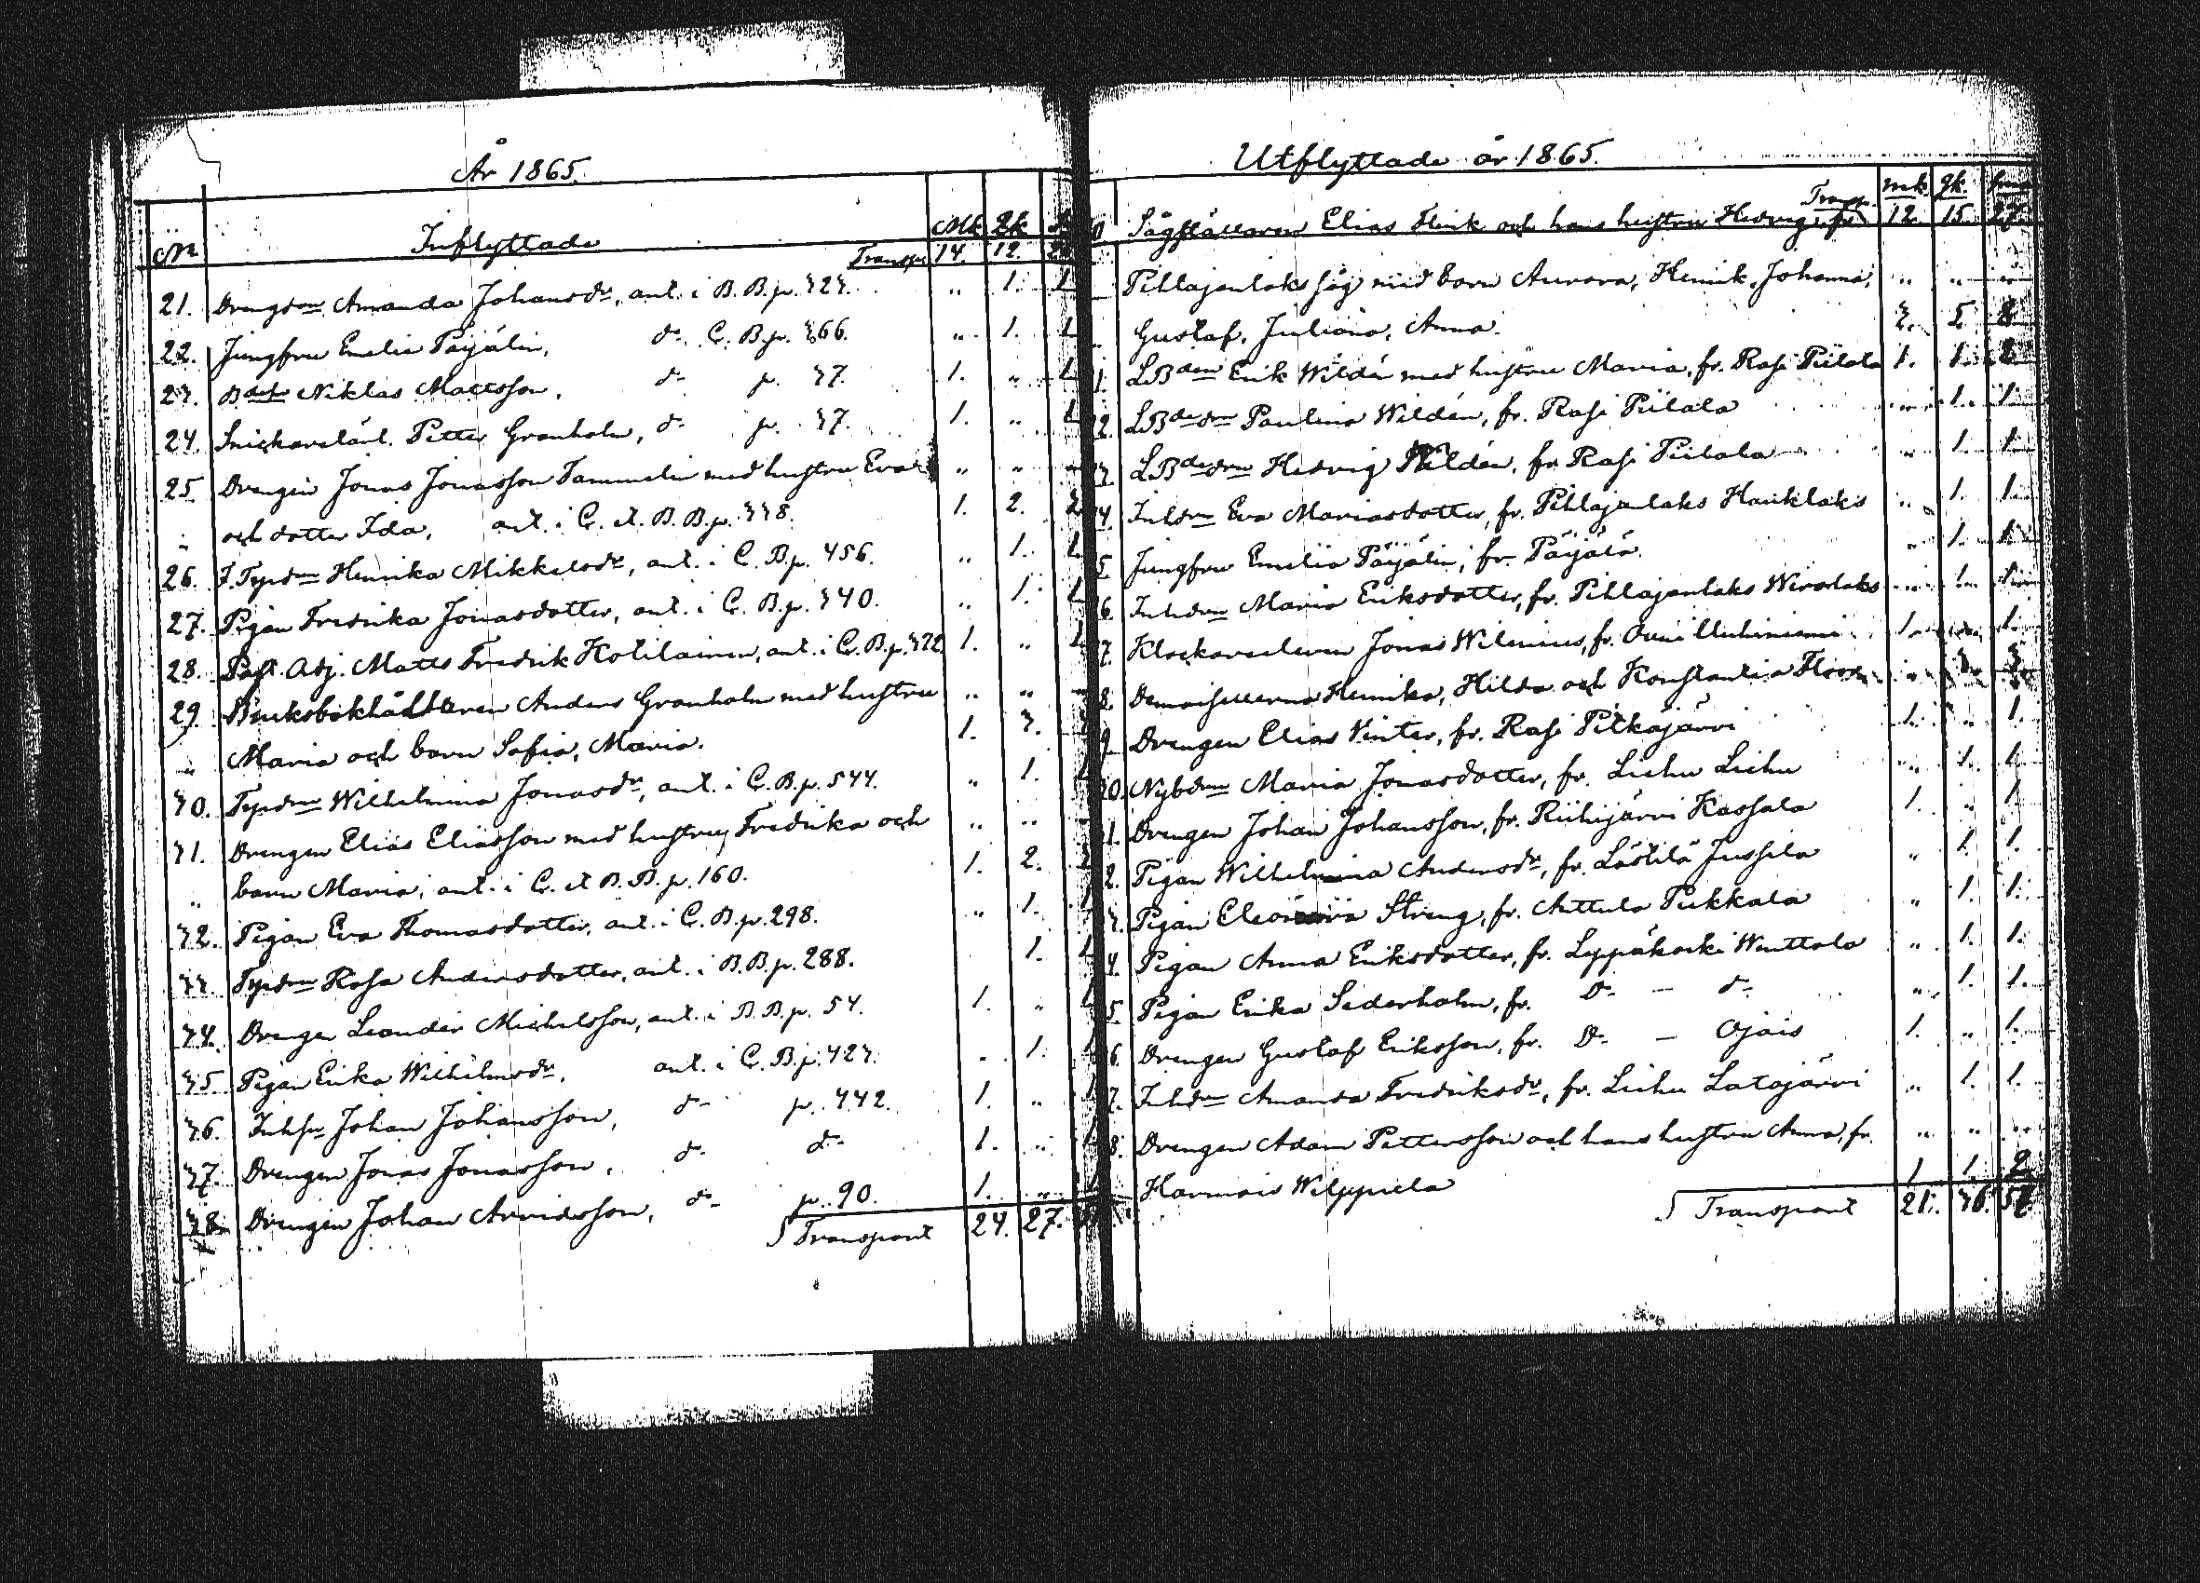 År 1865.
No Inflyttade Mk. Qk.
Transp. 14. 12.
21. Drengdrn Amanda Johansdr, ant. i B. B. p. 323. " 1. 1
22. Jungfru Emelia Päijälin, do C. B. p. 366. " 1. 1
23. Niklas Mattsson, do p. 37. 1. " 1
24. Snickarelärl. Petter Granholm, do p. 37. 1. " 1
25 Drengen Jonas Jonasson Tammelin med hustru Eva " " "
" och dotter Ida, ant. i C. et. B. B. p. 338. 1. 2. 3
26. T. Tpdrn Henrika Mikkelsdr, ant. i C. B. p. 456. " 1. 1
27. Pigan Fredrika Jonasdotter, ant. i C. B. p. 340. " 1. 1
28. Past. Adj. Matts Fredrik Hotilainen, ant. i C. B. p. 322. 1. " 1
29. Bruksbokhållaren Anders Granholm med hustru " " "
" Maria och barn Sofia, Maria. 1. 3.
30. Tpdrn Wilhelmina Jonasdr, ant. i C. B. p. 544. " 1.
31. Drengen Elias Eliasson med hustru Fredrika och " " "
" barn Maria, ant. i C. et B. B. p. 160. 1. 2.
32. Pigan Eva Thomasdotter, ant. i C. B. p. 298. " 1.
33. Tpdrn Rosa Andersdotter, ant. i B. B. p. 288. 1. 1
34. Drengen Leander Michelsson, ant. i B. B. p. 54. 1. " 1
35 Pigan Erika Wilhelmsdr, ant. i C. B. p. 423. " 1. 1
36. Inhsn Johan Johansson, do p. 442. 1. " 1
37. Drengen Jonas Jonasson, do do 1. " 1
38. Drengen Johan Arvidsson, do p. 90. 1. "
Transport 24. 27.
Utflyttade år 1865.
Transp. mk. qk.
Elias Flink och hans hustru Hedvig, fr. 12. 15. 27.
Pihlajanlaks såg med barn Aurora, Henrik, Johanna, " " "
Gustaf, Juliana, Anna. 3. 5 8
1. LBden Erik Wildén med hustru Maria, fr. Rasi Piilola 1. 1. 2
2. LBdedrn Paulina Wildén, fr. Rasi Piilola " 1. 1.
3. LBdedrn Hedvig Wildén, fr. Rasi Piilola " 1. 1.
4. Inhdrn Eva Mariasdotter, fr. Pihlajanlaks Hauklaks " 1. 1.
5 Jungfru Emelia Päijälin, fr. Päijälä " 1. 1.
6. Inhdrn Maria Eriksdotter, fr. Pihlajanlaks Wirolaks " 1. 1.
7. Klockareeleven Jonas Wilenius, fr. Onni 1. " 1.
8. Demoisellerna Henrika, Hilda och Konstantia " 3. 3.
9 Drengen Elias Vinter, fr. Rasi Pitkäjärvi 1. " 1.
20. Nybdrn Maria Jonasdotter, fr. Liehu Liehu " 1. 1.
1. Drengen Johan Johansson, fr. Riihijärvi Kassala 1. " 1.
2. Pigan Wilhelmina Andersdr, fr. Lästilä Jussila " 1. 1.
3. Pigan Eleonora Streng, fr. Anttula Pukkala " 1. 1.
4. Pigan Anna Eriksdotter, fr. Leppäkoski Wanttala " 1. 1.
5. Pigan Erika Sederholm, fr. Do — do " 1. 1.
6. Drengen Gustaf Eriksson, fr. Do — Ojais 1. " 1.
7. Inhdrn Amanda Fredriksdr, fr. Liehu Latajärvi " 1. 1.
8. Drengen Adam Pettersson och hans hustru Anna, fr. " " "
Harmois Wilppula 1 1. 2
Transport 21. 36. 57.